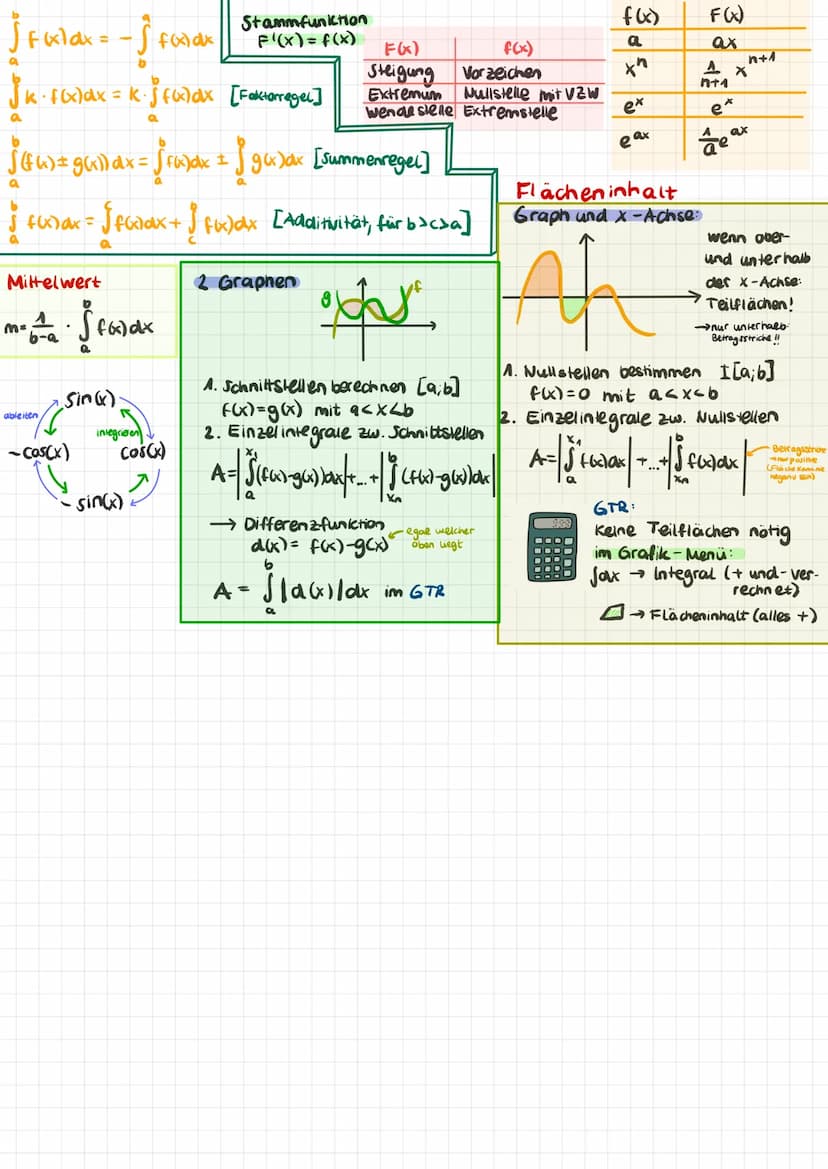 ∫ₐᵇ f(x)dx = - ∫ᵇₐ f(x)dx
∫ₐᵇ k · f(x)dx = k · ∫ₐᵇ f(x)dx [Faktorregel]
∫ₐᵇ (f(x) ± g(x)) dx = ∫ₐᵇ f(x)dx ± ∫ₐᵇ g(x)dx [Summenregel]
∫ₐᵇ f(x)dx = ∫ₐᶜ f(x)dx + ∫ f(x)dx [Additivität, für b>c>a]
Stammfunktion
F'(x) = f(x)
F(x) f(x)
Steigung Vorzeichen
Extremum Nullstelle mit VZW
Wendestelle Extremstelle
f(x) F(x)
a ax
xⁿ 1/(n+1) xⁿ⁺¹
eˣ eˣ
e^(ax) 1/a e^(ax)
Mittelwert
m = 1/(b-a) · ∫ₐᵇ f(x)dx
ableiten
integrieren
sin(x)
-cos(x) cos(x)
-sin(x)
2 Graphen
g f
1. Schnittstellen berechnen [a;b]
f(x)=g(x) mit a<x<b
2. Einzelintegrale zw. Schnittstellen
A=|∫ₐ^(x₁) (f(x)-g(x))dx|+...+|∫_(xₙ)^b (f(x)-g(x))dx|
→ Differenzfunktion
d(x) = f(x)-g(x) ← egal welcher
oben liegt
A = ∫ₐᵇ |d(x)| dx im GTR
Flächeninhalt
Graph und x-Achse:
wenn ober-
und unterhalb
der x-Achse:
Teilflächen!
→nur unterhalb
Betragsstriche!!
1. Nullstellen bestimmen I[a;b]
f(x)=0 mit a<x<b
2. Einzelintegrale zw. Nullstellen
A=|∫ₐ^(x₁) f(x)dx|+...+|∫_(xₙ)^b f(x)dx|
Betragsstriche
→nur positive
(Fläche kann nie
negativ sein)
GTR:
Keine Teilflächen nötig
im Grafik-Menü:
∫dx → Integral (+ und - ver-
rechnet)
→ Flächeninhalt (alles +)